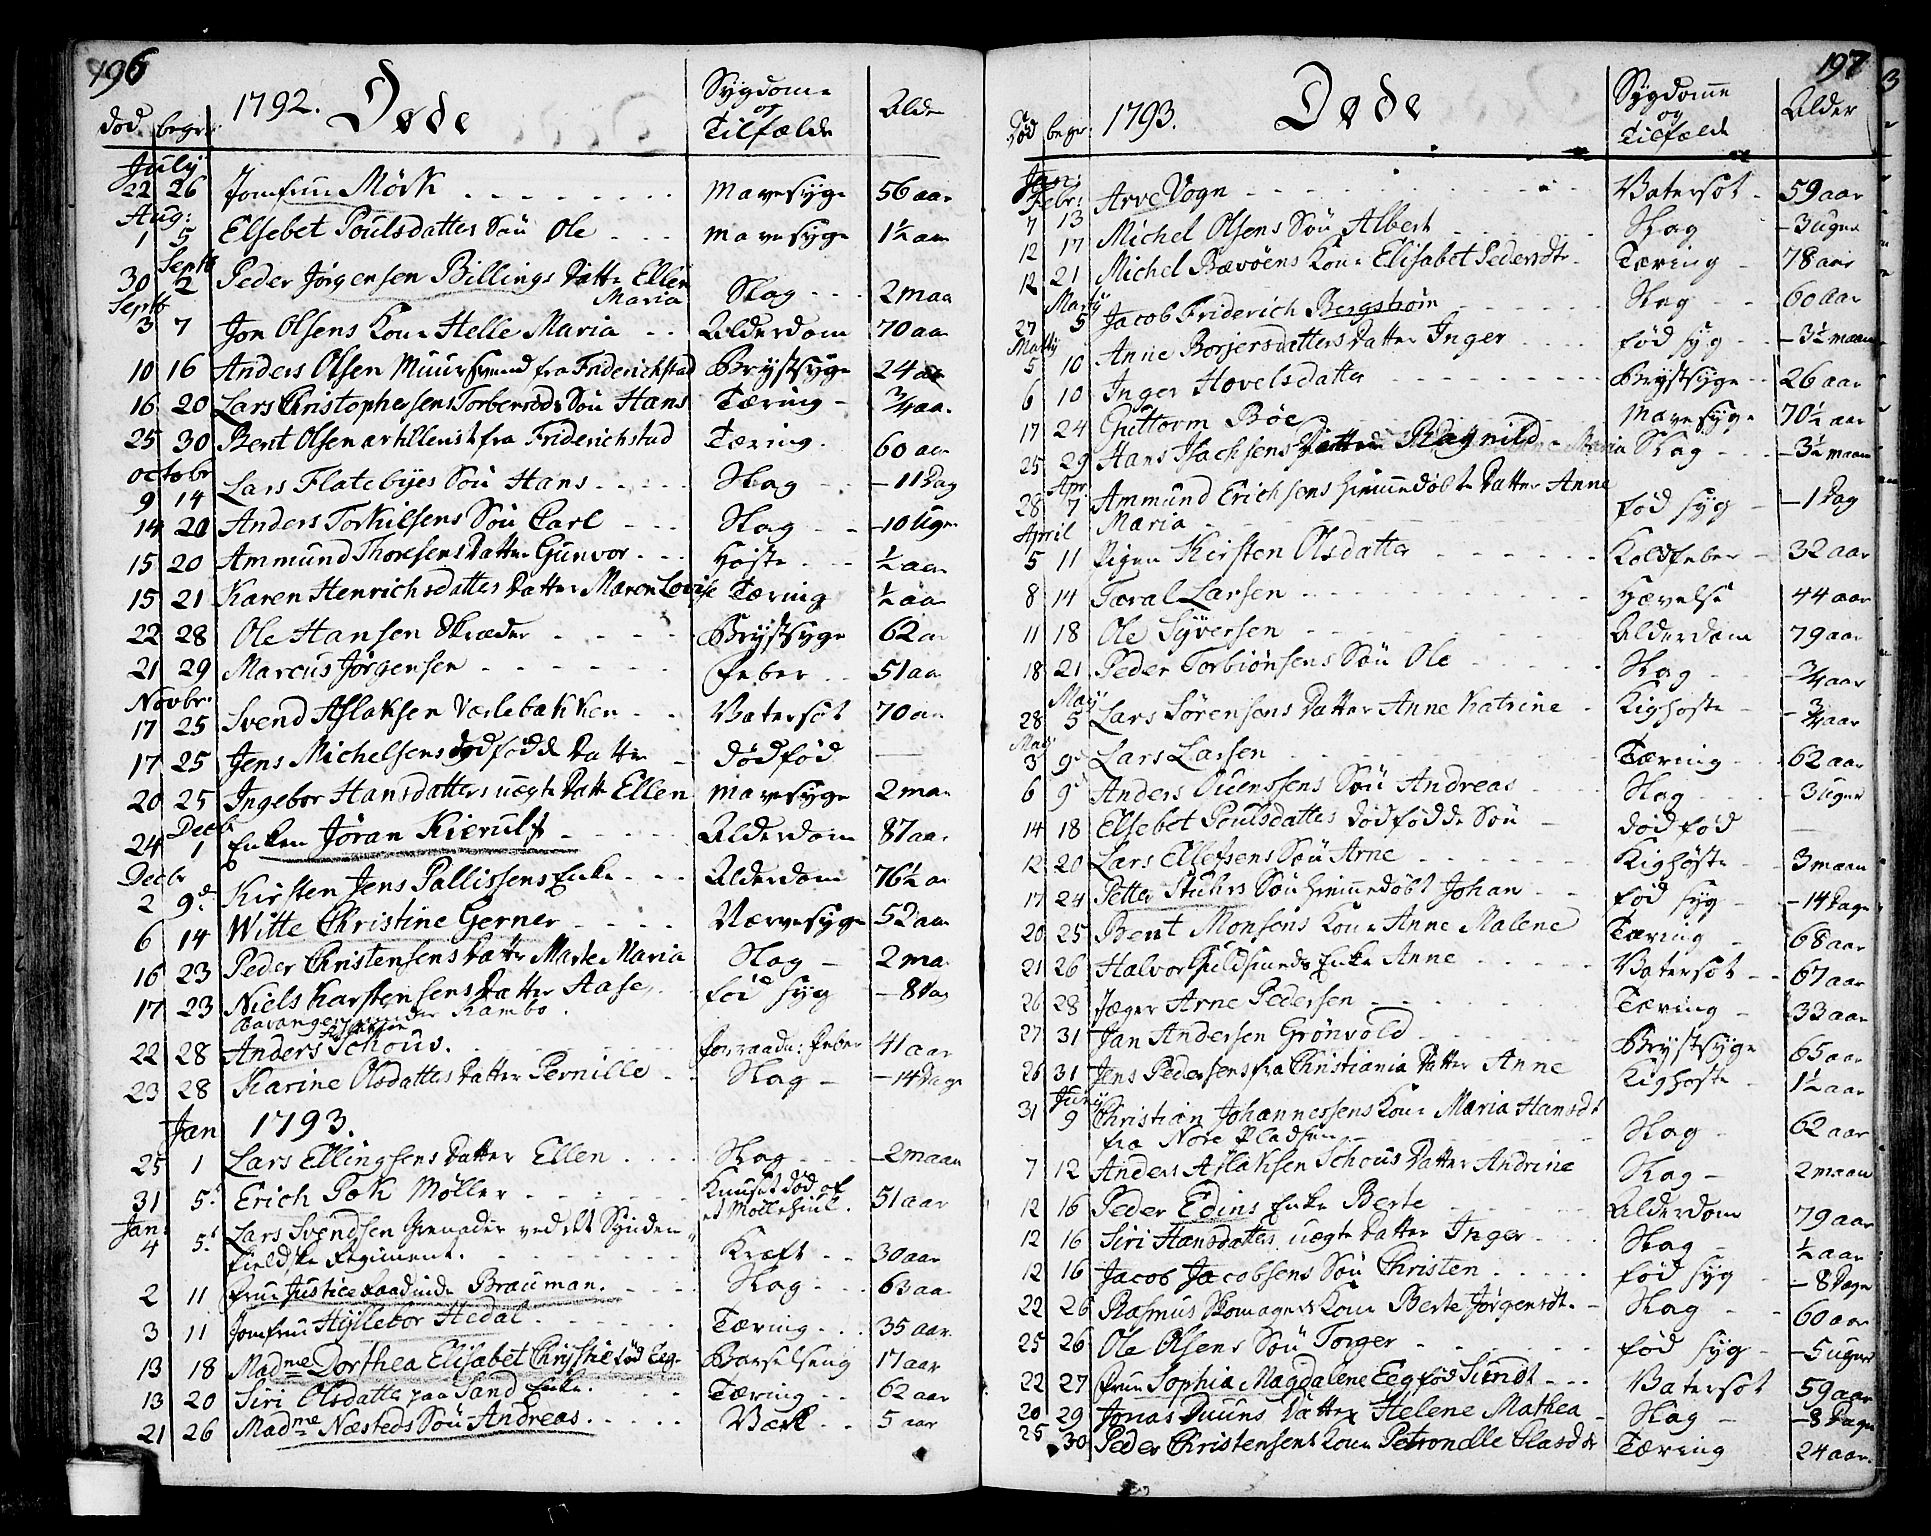 196
1792. Døde Sygdom og Tilfælde Alder
død. begr.
July
22 26 Jomfrue Mörk Mavesyge 56 aar
Aug:
1 5 Elsebet Poulsdatter Søn Ole mavesyge 1½ aar
Septb
30 2 Peder Jørgensen Billings Datter Ellen Maria Slag 2 maa
Septb
3 7 Jon Olsens Kone Helle Maria Alderdom 70 aar
10 16 Anders Olsen Muursvend fra Friderichstad Brystsyge 24 aar
16 20 Lars Christophersens Torberrøds Søn Hans Tæring ¾ aar
25 30 Bent Olsen artillerist fra Friderichstad Tæring 60 aar
octobr
9 14 Lars Flatebyes Søn Hans Slag 11 Dag
14 20 Anders Torkilsens Søn Carl Slag 10 Uger
15 20 Ammund Thoresens Datter Gunvor Hoste ½ aar
15 21 Karen Henrichsdatter Datter Maren Lovise Tæring ½ aar
22 28 Ole Hansen Skræder Brystsyge 62 aar
21 29 Marcus Jørgensen Feber 51 aar
Novbr
17 25 Svend Aslaksen Verlebakken Vatersot 70 aar
17 25 Jens Michelsens dødfødde Datter dødfød
20 25 Ingebor Hansdatters uægte Datt. Ellen mavesyge 2 maa
Decb
24 1 Enken Jöran Kierulf Alderdom 87 aar
Decbr
2 9d Kirsten Jens Pallissens Enke Alderdom 76½ a
6 14 Witte Christine Gerner Nærvesyge 52 aar
16 23 Peder Christensens Datter Marte Maria Slag 2 ma
17 23 Niels Karstensens Datter Aase fød syg 8 dag
under Kambo
22 28 Anders Aslaksen Schous. forraadn: Feber 41 aar
23 28 Karine Olsdatters Datter Pernille Slag 14 Dage
Jan 1793.
25 1 Lars Ellingsens Datter Ellen Slag 2 maan
31 5t Erich Pok Møller Knuset død af et Møllehiul. 51 aar
Jan:
4 5t Lars Svendsen Grenader ved det Synden
fieldske Regiment. Kræft 30 aar
2 11 Frue Justiceraadinde Brauman. Slag 63 aar
3 11 Jomfrue Hyllebor Hedal Tæring 35 aar.
13 18 Madme Dorthea Elisabet Chrystie fød Eeg. Barselseng 17 aar
13 20 Siri Olsdatter paa Sand Enke. Tæring 62 aar
21 26 Madme Næsteds Søn Andreas. Værk 5 aar
197
1793. Døde Sygdomme og Tilfælde Alder
Død begr
Jan:
Febr:
7 13 Arve Vogn Vatersot 59 aar
12 17 Michel Olsens Søn Albert Slag 3 uger
12 21 Michel Bævöens Kone Elisabet Pedersdtr Tæring 78 aar
Marty
27 5 Jacob Friderich Bergstrøm Slag 60 Aar
Marty
5 10 Anne Borjersdatters Datter Inger fød syg 3½ maan
6 10 Inger Hovelsdatter Brystsyge 26 aar
17 24 Guttorm Böe mavesyge 70½ aar
25 29 Hans Isachsens Datter Ragnild Maria Slag 3½ maan
Apr
28 7 Ammund Erichsens hiemmedøbte Datter Anne
Maria fød syg 1 Dag
April
5 11 Pigen Kirsten Olsdatter Koldfeber 32 aar
8 14 Taral Larsen Hævelse 44 aar
11 18 Ole Syversen Alderdom 79 aar
18 21 Peder Torbiönsens Søn Ole Slag ¾ aar
May
28 5 Lars Sørensens Datter Anne Katrine Kighoste ¾ aar
May
3 9d Lars Larsen Tæring 62 aar
6 9d Anders Ouenssens Søn Andreas Slag 3 uger
14 18 Elsebet Poulsdatters dødfødde Søn dødfød
12 20 Lars Ellefsens Søn Arne Kighøste 3 maan
17 24 Petter Stuhrs Søn hiemmedøbt Johan fød syg 14 Dage
20 25 Bent Monsens Kone Anne Malene Tæring 68 aar
21 26 Halvor Guldsmeds Enke Anne Vatersot 67 aar
26 28 Jæger Arne Pedersen Tæring 33 aar
27 31 Jan Andersen Grönvold Brystsyge 65 aar
26 31 Jens Pedersens fra Christiania Datter Anne Kighoste 1½ aar
Juny
31 9 Christian Johannessens Kone Maria Hansdt
fra Nore Pladsen Slag 62 aar
7 12 Anders Aslaksen Schous Datter Andrine Slag 2 maan
12 16 Peder Edins Enke Berte Alderdom 79 aar
12 16 Siri Hansdatters uægte Datter Inger Slag ½ aar
12 16 Jacob Jacobsens Søn Christen fød syg 8 Dage
22 26 Rasmus Skomagers Kone Berte Jørgensdt. Slag 60 aar
25 26 Ole Olsens Søn Torger fød syg 5 uger
22 27 Frue Sophia Magdalene Eeg fød Sundt Vatersot 59 aar
20 29 Jonas Duuns Datter Helene Mathea Slag 8 Dage
25 30 Peder Christensens Kone Petronelle Clasdtr Tæring 24 aar.